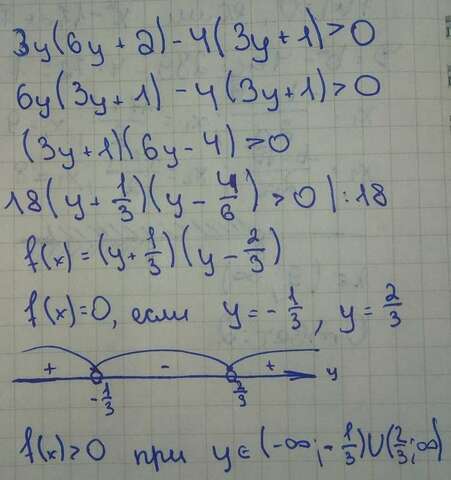 3y(6y + 2) - 4(3y + 1) > 0
6y(3y + 1) - 4(3y + 1) > 0
(3y + 1)(6y - 4) > 0
18(y + 1/3)(y - 4/6) > 0 | : 18
f(x) = (y + 1/3)(y - 2/3)
f(x) = 0, если y = - 1/3, y = 2/3
+ - + y
- 1/3 2/3
f(x) > 0 при y ∈ (-∞; - 1/3) ∪ (2/3; ∞)